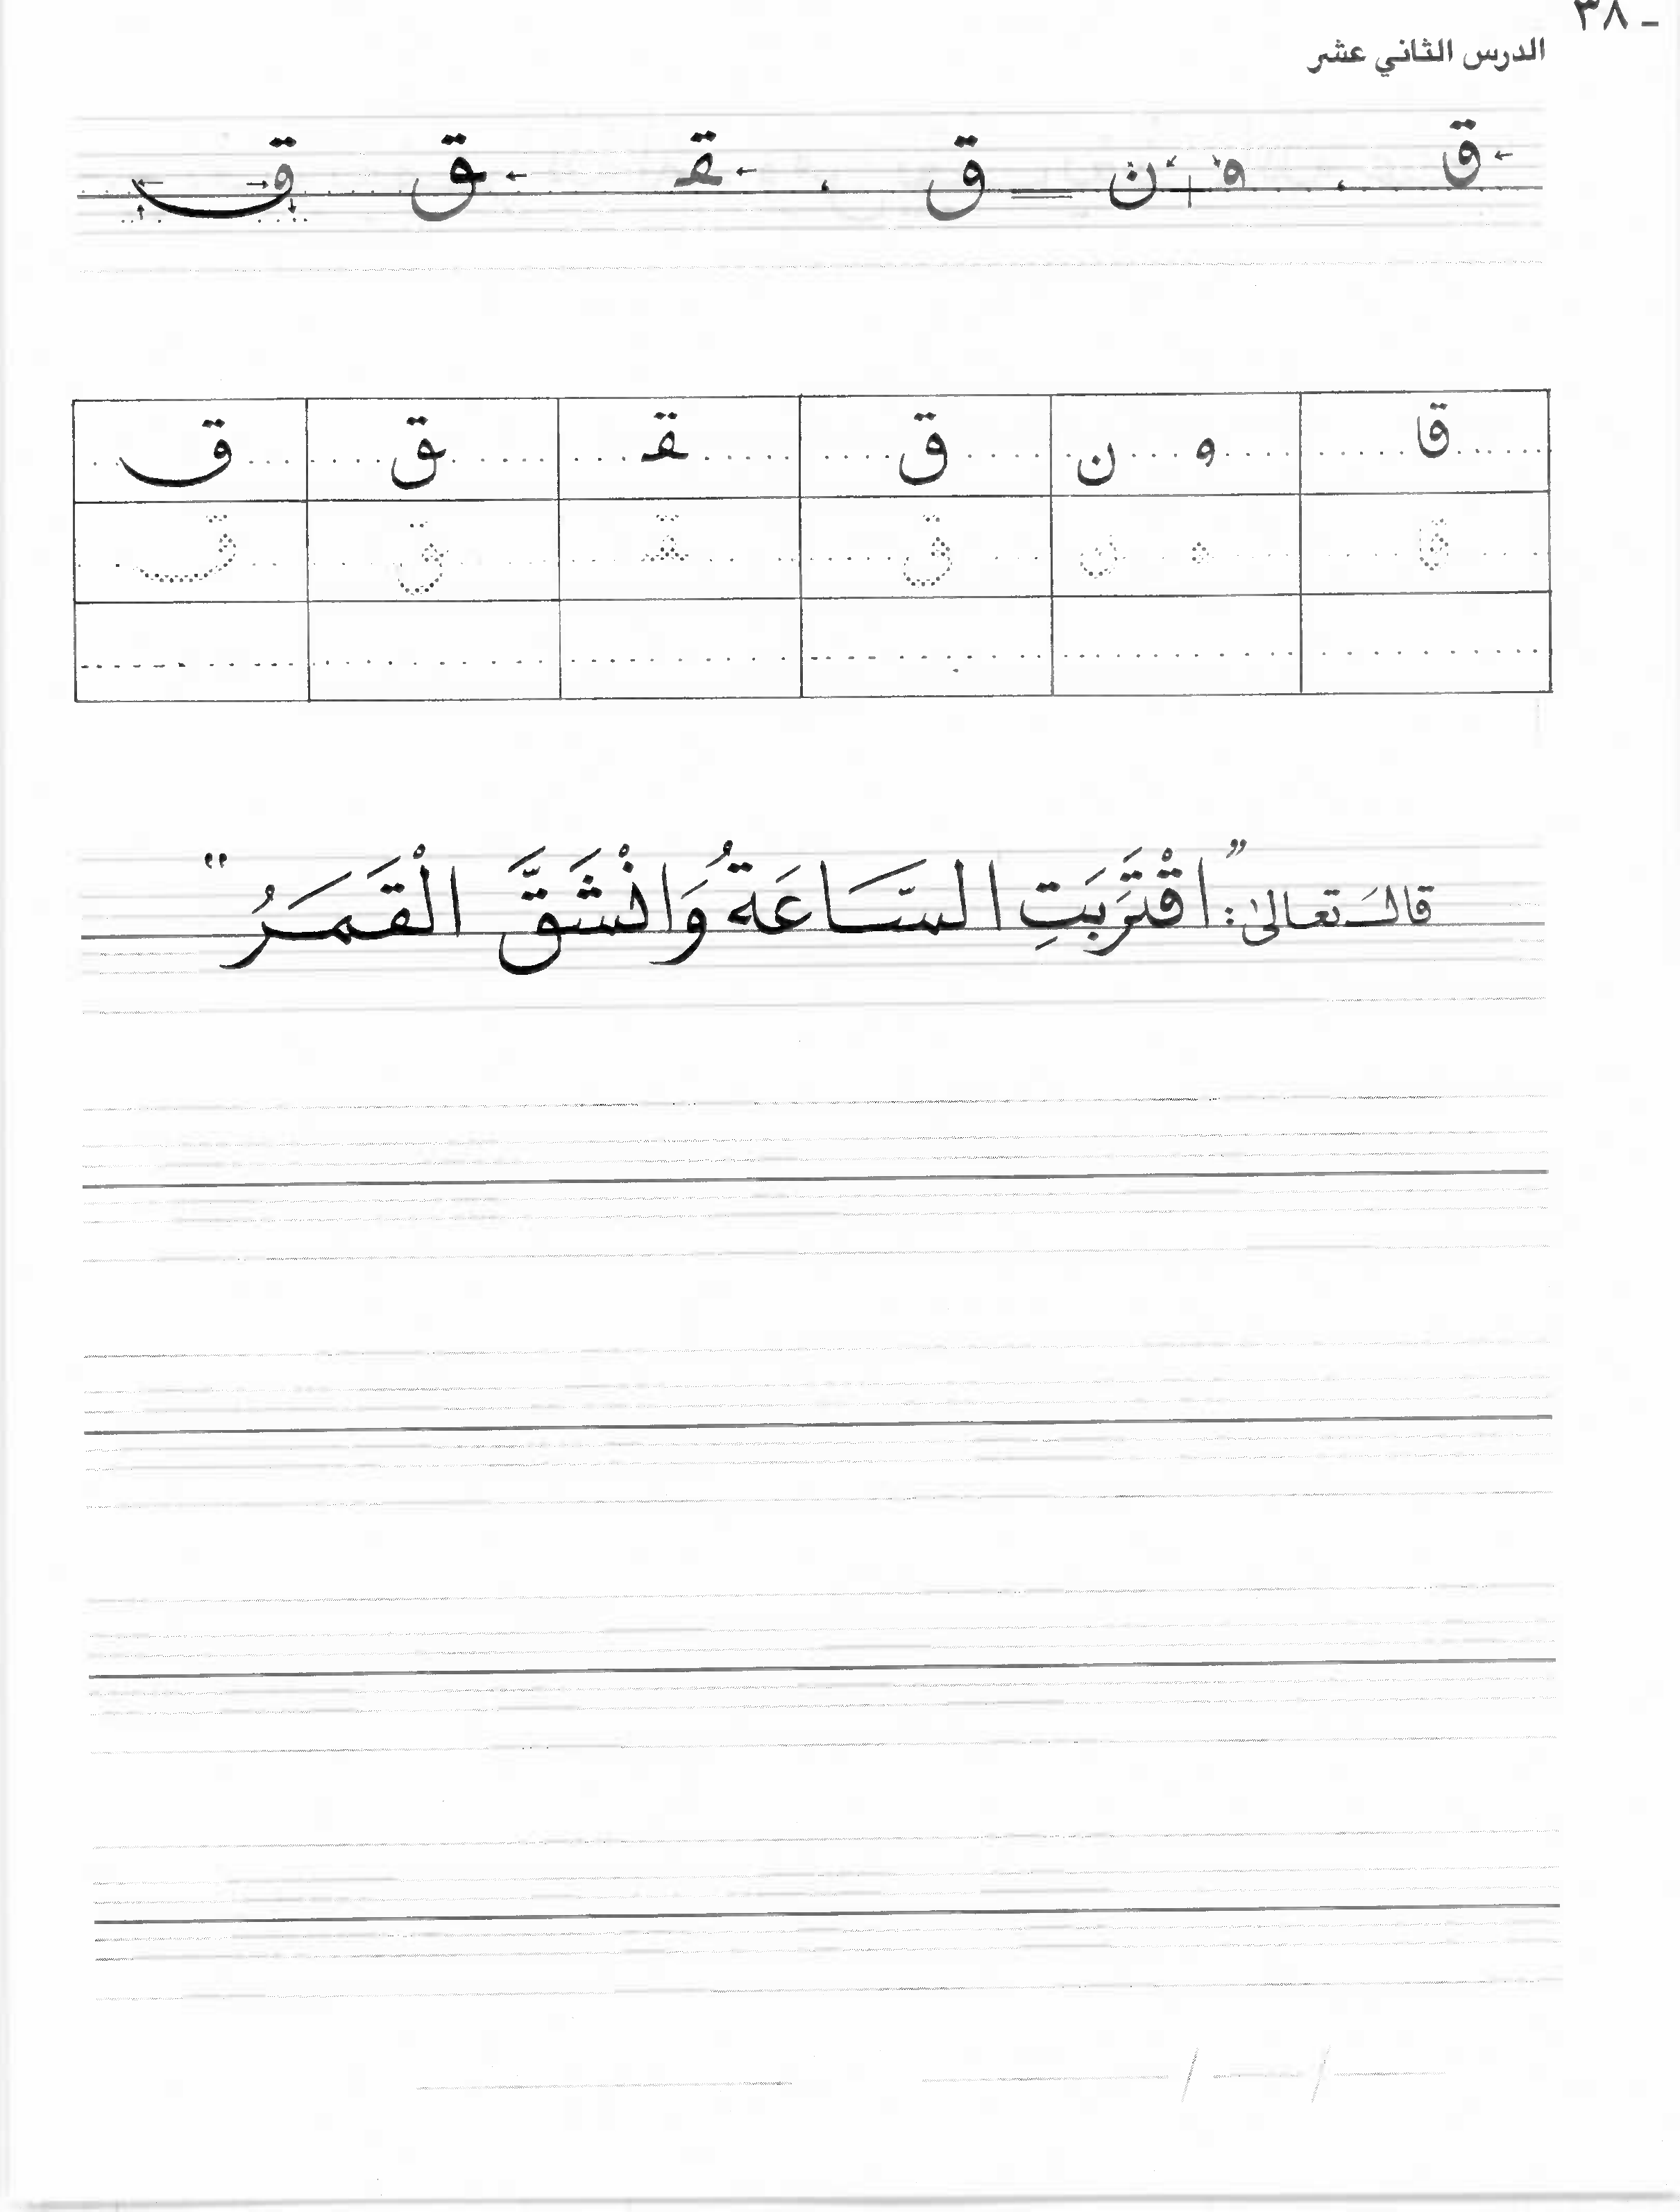 ٣٨ -
الدرس الثاني عشر
ق ، و + ن = ق ، ـقـ ـق ق
ق و ن ق ـقـ ـق ق
ق و ن ق ـقـ ـق ق
قال تعالىٰ : " اقْتَرَبَتِ السَّاعَةُ وَانْشَقَّ الْقَمَرُ "